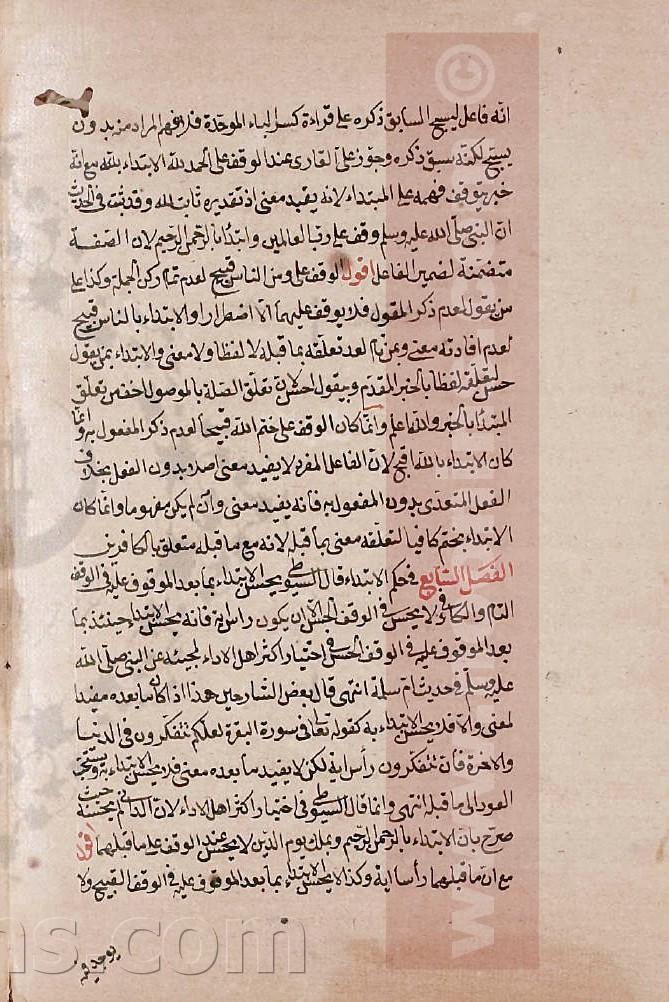 انه فاعل ليسبح السابق ذكره على قراءة كسر الباء الموحدة فلا يفهم المراد من بدون
يسبح لكنه سبق ذكره وجوز على القارى عند الوقف على الحمد لله الابتداء بلله مع انه
خبر يتوقف فهمه على المبتداء لانه يفيد معنى اذ تقديره ثابت لله وقد ثبت فى الحديث
ان النبى صلى الله عليه وسلم وقف على رب العالمين وابتدا بالرحمن الرحيم لان الصفة
متضمنة لضمير الفاعل اقول الوقف على ومن الناس قبيح لعدم تمام ركن الجملة وكذا على
من يقول لعدم ذكر المقول فلا يوقف عليهما الا اضطرارا والابتداء بالناس قبيح
لعدم افادته معنى وبمن تام لعدم تعلقه بما قبله لا لفظا ولا معنى والابتداء بمن يقول
حسن لتعلقه لفظا بالخبر المقدم وبيقول احسن لان تعلق الصلة بالموصول اخف من تعلق
المبتدا بالخبر والله اعلم وانما كان الوقف على ختم الله قبيحا لعدم ذكر المفعول به وانما
كان الابتداء بالله اقبح لان الفاعل المفرد لا يفيد معنى اصلا بدون الفعل بخلاف
الفعل المتعدى بدون المفعول به فانه يفيد معنى وان لم يكن مفهوما وانما كان
الابتداء بختم كافيا لتعلقه معنى بما قبله لانه مع ما قبله متعلق بالكافرين
الفصل السابع فى حكم الابتداء قال السيوطى يحسن الابتداء بما بعد الموقوف عليه فى الوقف
التام والكافى ولا يحسن فى الوقف الحسن الا ان يكون راس اية فانه يحسن الابتداء حينئذ بما
بعد الموقوف عليه فى الوقف الحسن فى اختيار اكثر اهل الاداء لمجيئه عن النبى صلى الله
عليه وسلم فى حديث ام سلمة انتهى قال بعض الشارحين هذا اذا كان ما بعده مفيدا
لمعنى والا فلا يحسن الابتداء به كقوله تعالى فى سورة البقرة لعلكم تتفكرون فى الدنيا
والاخرة فان تتفكرون رأس اية لكن لا يفيد ما بعده معنى فلا يحسن الابتداء به ويستحب
العود الى ما قبله انتهى وانما قال السيوطى فى اختيار اكثر اهل الاداء لان الدانى لم يحسنه حيث
صرح بان الابتداء بالرحمن الرحيم وبملك يوم الدين لا يحسن عند الوقف على ما قبلهما اقول
مع ان ما قبلهما رأسا اية وكذا لا يحسن الابتداء بما بعد الموقوف عليه فى الوقف القبيح ولا
يوجد فيه
ns.com
©